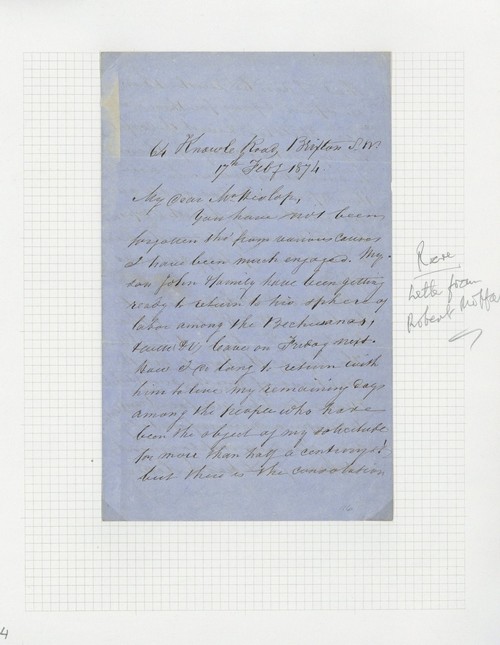 64 Knowle Road, Brixton S.W.
17th Feby 1874
My dear Mr
You have not been
forgotten tho' from various causes
I have been much engaged. My
son John & family have been getting
ready to return to his sphere of
labor among the Bechuanas,
leave on Friday next.
How I do long to return with
him to live my remaining days
among the people who have
been the object of my solicitude
for more than half a century!
but there is the consolation
Rare
Letter from
Robert Moffa
4